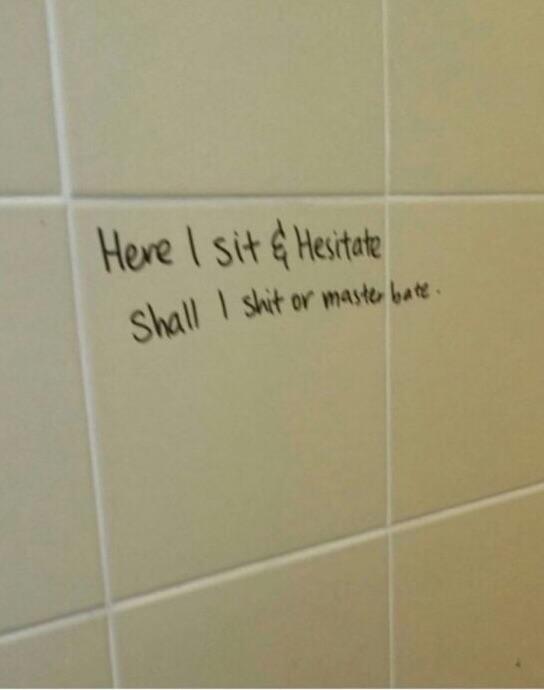 Here I sit & Hesitate
Shall I shit or master bate.